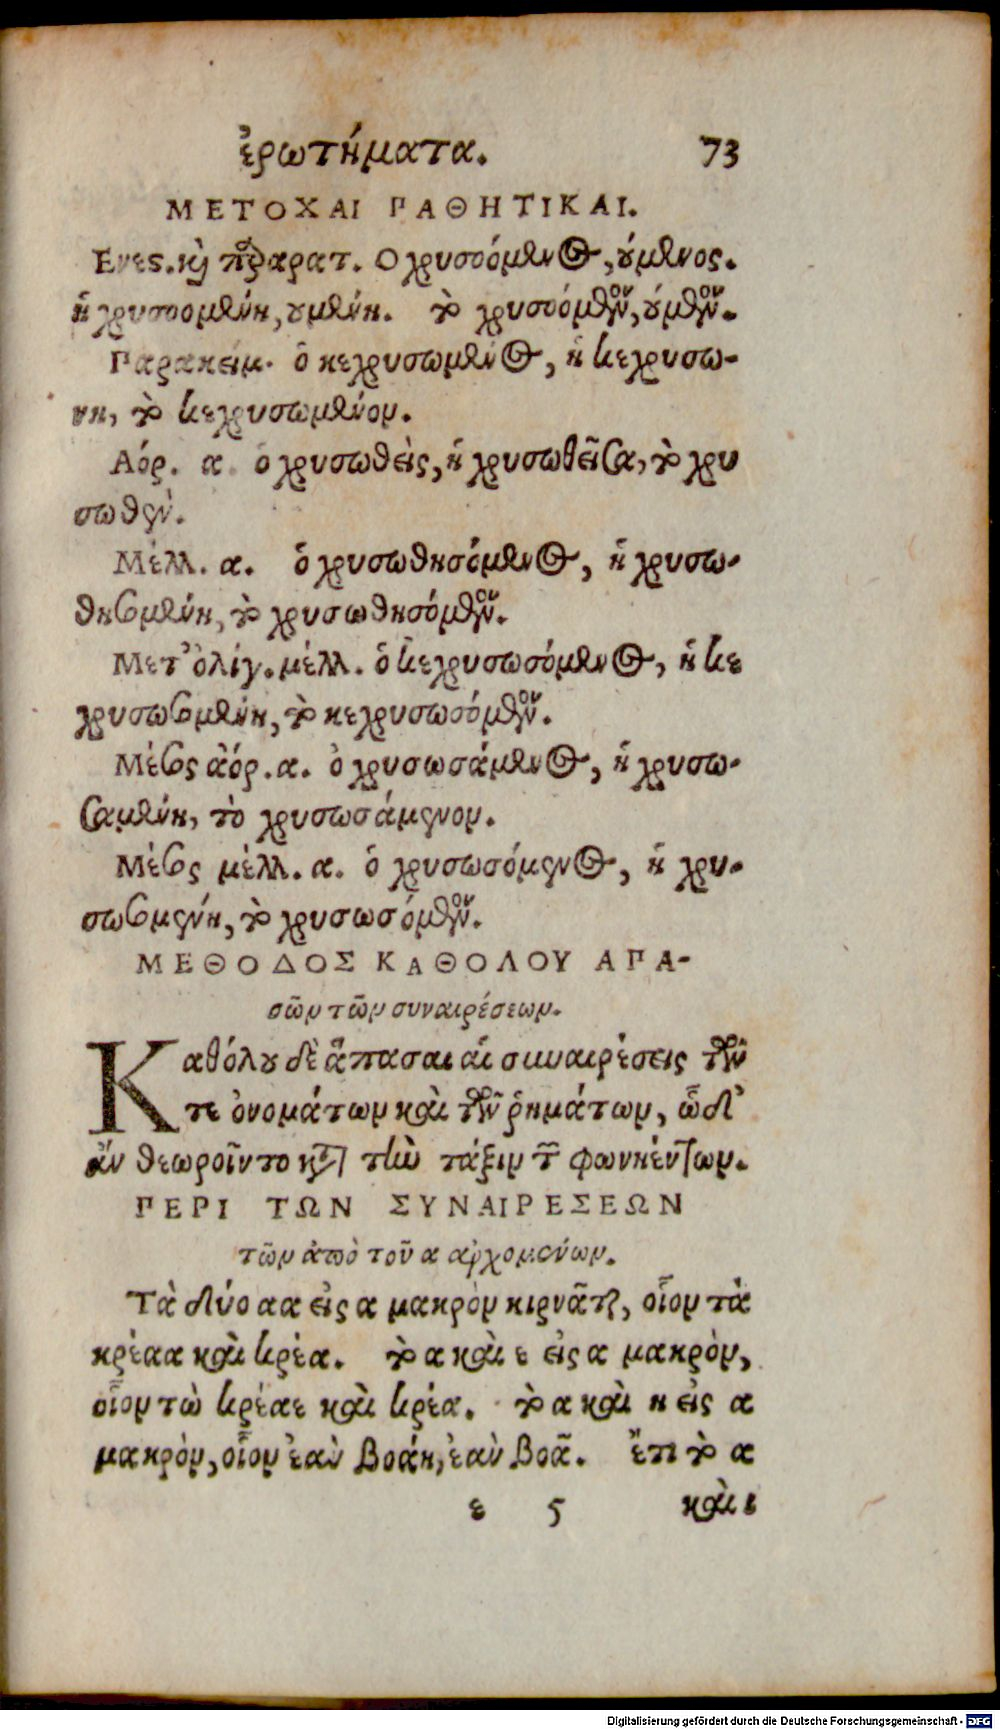 ἐρωτήματα. 73
ΜΕΤΟΧΑΙ ΠΑΘΗΤΙΚΑΙ.
Ενεϛ. καὶ παρατ. Ο χρυσοόμενος, ούμενος.
ἡ χρυσοομένη, ουμένη. τὸ χρυσοόμενον, ούμενον.
Παρακείμ. ὁ κεχρυσωμένος, ἡ κεχρυσω-
νη, τὸ κεχρυσωμένον.
Αόρ. α ὁ χρυσωθεὶς, ἡ χρυσωθεῖσα, τὸ χρυ
σωθὲν.
Μέλλ. α. ὁ χρυσωθησόμενος, ἡ χρυσω-
θησομένη, τὸ χρυσωθησόμενον.
Μετ᾽ ὀλίγ. μέλλ. ὁ κεχρυσωσόμενος, ἡ κε
χρυσωσομένη, τὸ κεχρυσωσόμενον.
Μέσος ἀόρ. α. ὁ χρυσωσάμενος, ἡ χρυσω-
σαμένη, τὸ χρυσωσάμενον.
Μέσος μέλλ. α. ὁ χρυσωσόμενος, ἡ χρυ-
σωσομένη, τὸ χρυσωσόμενον.
ΜΕΘΟΔΟΣ ΚΑΘΟΛΟΥ ΑΠΑ-
σῶν τῶν συναιρέσεων.
Καθόλου δὲ ἅπασαι αἱ συναιρέσεις τῶν
τε ὀνομάτων καὶ τῶν ῥημάτων, ὧδ᾽
ἂν θεωροῖντο κατὰ τὴν τάξιν τῶν φωνηέντων.
ΠΕΡΙ ΤΩΝ ΣΥΝΑΙΡΕΣΕΩΝ
τῶν ἀπὸ τοῦ α ἀρχομένων.
Τὰ δύο αα εἰς α μακρὸν κιρνᾶται, οἷον τὰ
κρέαα καὶ κρέα. τὸ α καὶ ε εἰς α μακρὸν,
οἷον τὼ κρέαε καὶ κρέα. τὸ α καὶ η εἰς α
μακρὸν, οἷον ἐὰν βοάη, ἐὰν βοᾶ. Ἔτι τὸ α
ε 5 καὶ ε
Digitalisierung gefördert durch die Deutsche Forschungsgemeinschaft - DFG